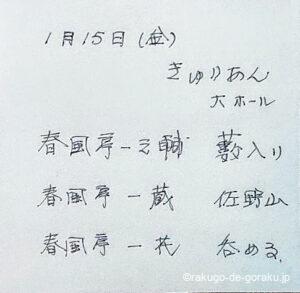 1月15日(金)
きゅりあん
大ホール
春風亭一之輔 藪入り
春風亭一蔵 佐野山
春風亭一花 呑める
©rakugo-de-goraku.jp